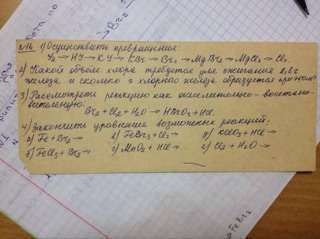 №16. 1) Осуществить превращения:
I₂ → HI → KI → KBr → Br₂ → MgBr₂ → MgCl₂ → Cl₂.
2) Какой объём хлора требуется для сжигания
железа, и сколько г хлорного железа образуется при этом?
3) Рассмотреть реакцию как окислительно-восстано-
вительную:
Br₂ + Cl₂ + H₂O → HBrO₃ + HCl.
4) Закончить уравнения возможных реакций:
а) Fe + Br₂ → в) FeBr₃ + Cl₂ → д) + HCl →
б) FeCl₃ + Br₂ → г) MnO₂ + HCl → е) Cl₂ + H₂O →
Br₂
FeBr